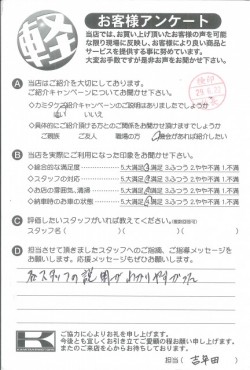 軽
お客様アンケート
当店では、お買い上げ頂いたお客様の声を可能
な限り現場に反映し、お客様により良い商品と
サービスを提供する事に努めています。
大変お手数ですが是非お声をお聞かせ下さい。
Ⓐ 当店はご紹介を大切にしております。
ご紹介キャンペーンについてお聞かせ下さい。
◇カミタケご紹介キャンペーンのご説明はありましたでしょうか
はい いいえ
◇具体的にご紹介頂ける方とのご関係をお聞かせ頂けますでしょうか
ご親族 ご友人 職場の方 機会があれば紹介したい
Ⓑ 当店を実際にご利用になった印象をお聞かせ下さい。
◇総合的な満足度 5.大満足 4.満足 3.ふつう 2.やや不満 1.不満
◇スタッフの対応 5.大満足 4.満足 3.ふつう 2.やや不満 1.不満
◇お店の雰囲気、清掃 5.大満足 4.満足 3.ふつう 2.やや不満 1.不満
◇納車時のお車の状態 5.大満足 4.満足 3.ふつう 2.やや不満 1.不満
Ⓒ 評価したいスタッフがいれば教えてください。
スタッフ名( )( )
Ⓓ 担当させて頂きましたスタッフへのご指摘、ご指導メッセージを
お願いします。応援メッセージもぜひお願い致します。
各スタッフの説明がわかりやすかった
K
ご協力に心よりお礼を申し上げます。
今後とも宜しくお引き立てご愛顧の程お願い申し上げます。
またのご来店を心からお待ちしております。
担当( 吉年田 )